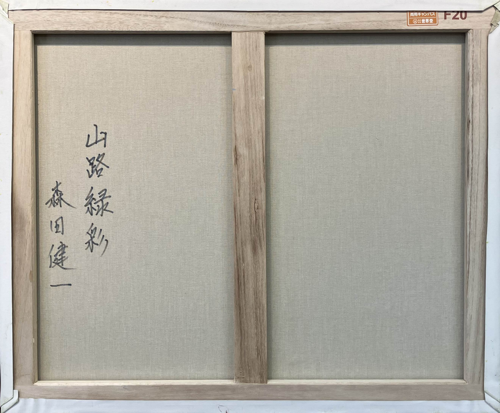 F20
山路緑彩
森田健一